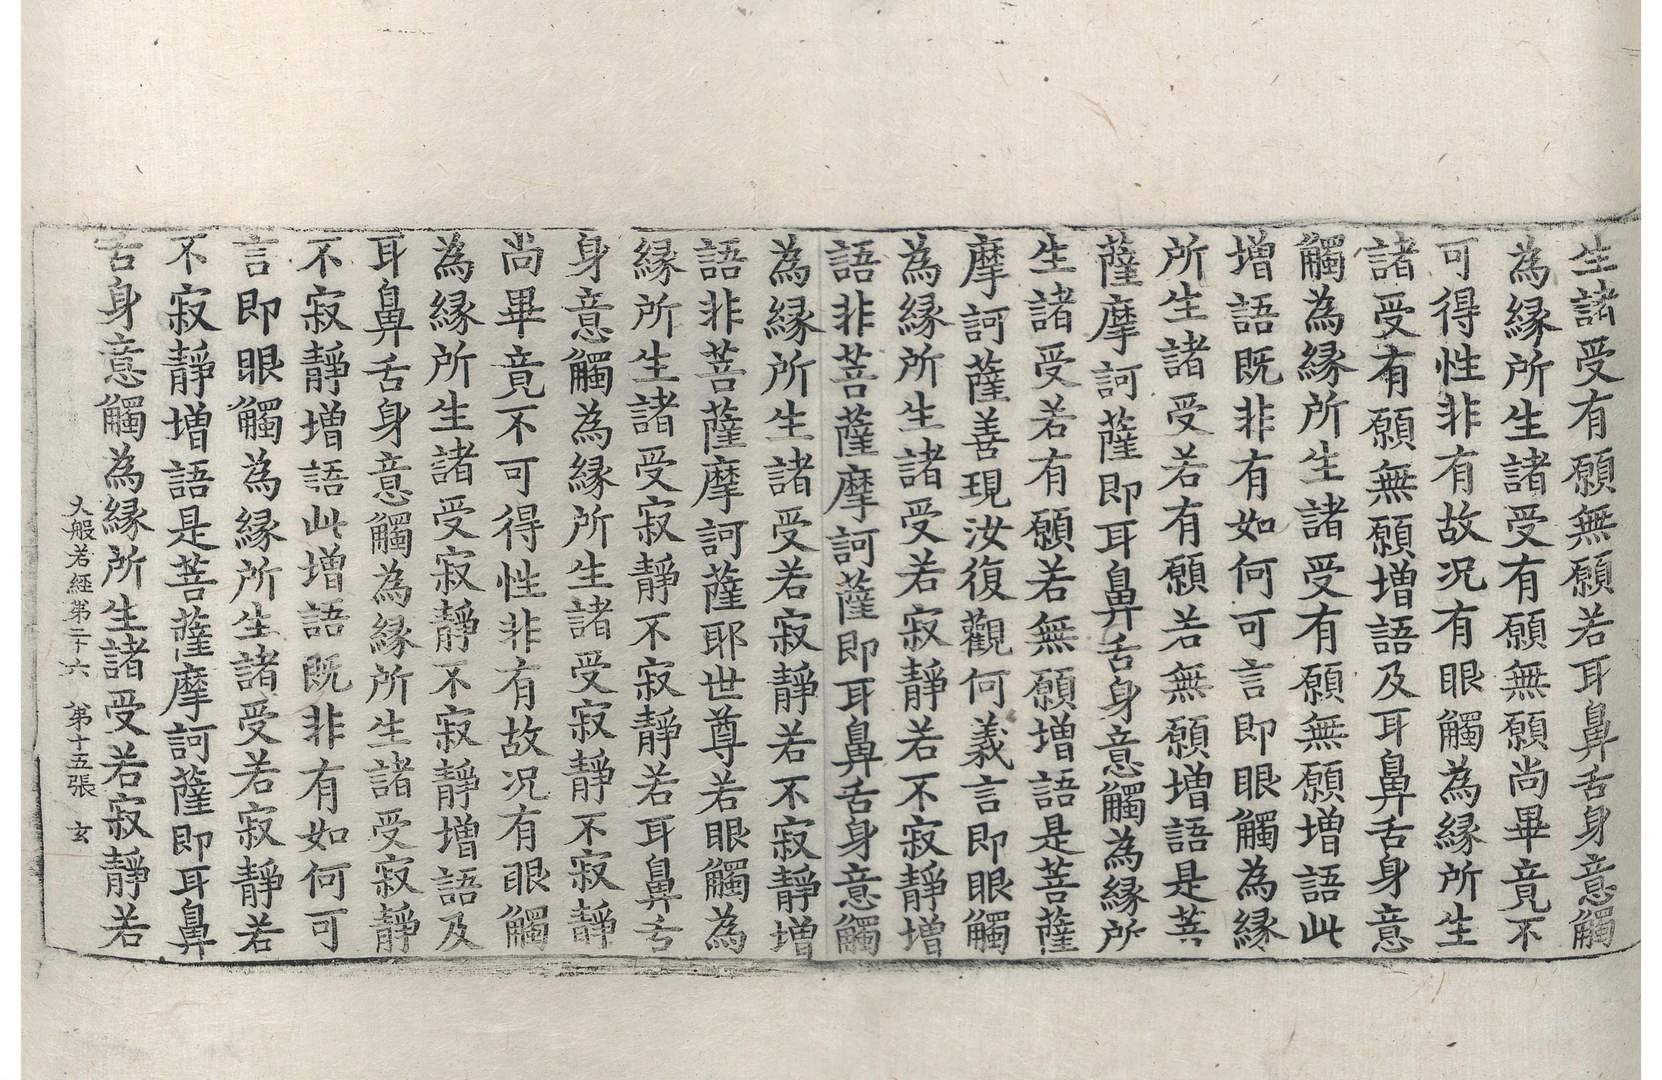 生諸受有願無願若耳鼻舌身意觸
為縁所生諸受有願無願尚畢竟不
可得性非有故况有眼觸為縁所生
諸受有願無願增語及耳鼻舌身意
觸為縁所生諸受有願無願增語此
增語既非有如何可言即眼觸為縁
所生諸受若有願若無願增語是菩
薩摩訶薩即耳鼻舌身意觸為縁所
生諸受若有願若無願增語是菩薩
摩訶薩善現汝復觀何義言即眼觸
為縁所生諸受若寂靜若不寂靜增
語非菩薩摩訶薩即耳鼻舌身意觸
為縁所生諸受若寂靜若不寂靜增
語非菩薩摩訶薩耶世尊若眼觸為
縁所生諸受寂靜不寂靜若耳鼻舌
身意觸為縁所生諸受寂靜不寂靜
尚畢竟不可得性非有故况有眼觸
為縁所生諸受寂靜不寂靜增語及
耳鼻舌身意觸為縁所生諸受寂靜
不寂靜增語此增語既非有如何可
言即眼觸為縁所生諸受若寂靜若
不寂靜增語是菩薩摩訶薩即耳鼻
舌身意觸為縁所生諸受若寂靜若
大般若經第二十六 第十五張 玄